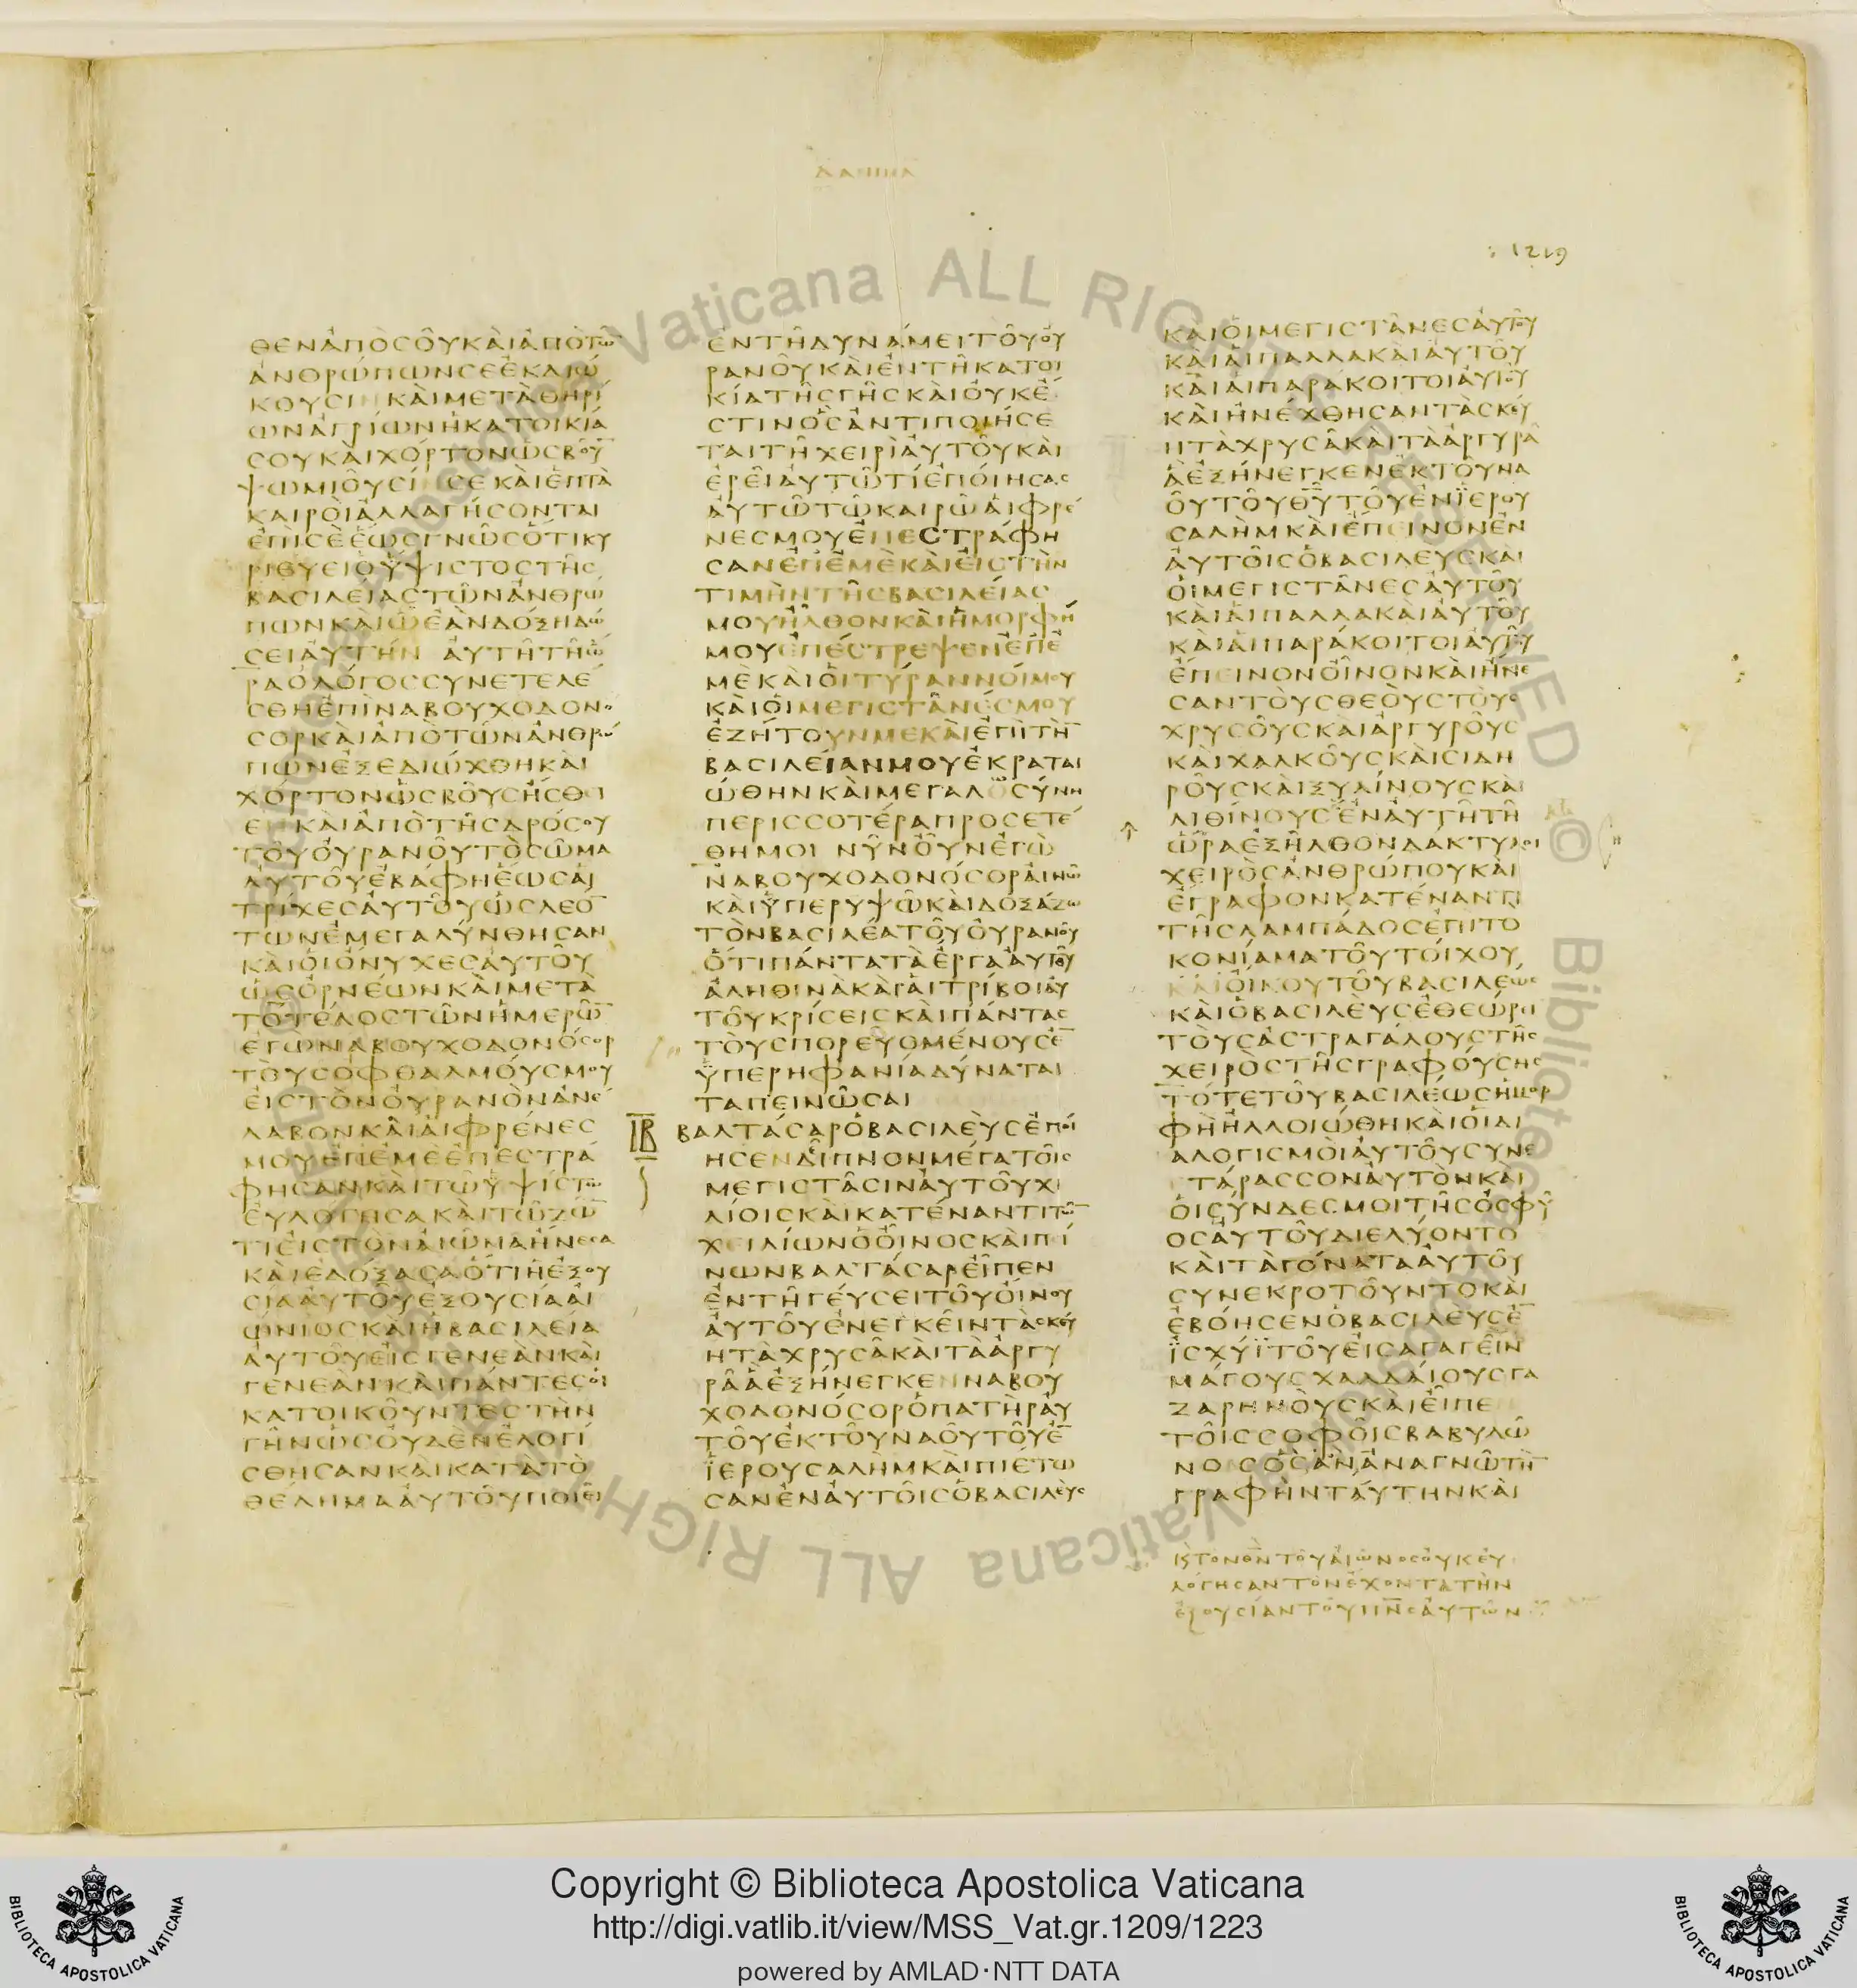 ΔΑΝΙΗΛ
1219
ΘΕΝΑΠΟΣΟΥΚΑΙΑΠΟΤΩ̅
ΑΝΘΡΩΠΩΝΣΕΕΚΔΙΩ
ΚΟΥΣΙ ΚΑΙΜΕΤΑΘΗΡΙ
ΩΝΑΓΡΙΩΝΗΚΑΤΟΙΚΙΑ
ΣΟΥΚΑΙΧΟΡΤΟΝΩΣΒΟΥ̅
ΨΩΜΙΟΥΣΙ ΣΕΚΑΙΕΠΤΑ
ΚΑΙΡΟΙΑΛΛΑΓΗΣΟΝΤΑΙ
ΕΠΙΣΕΕΩΣΓΝΩΣΟΤΙΚΥ
ΡΙΕΥΕΙΟΥΨΙΣΤΟΣΤΗΣ
ΒΑΣΙΛΕΙΑΣΤΩΝΑΝΘΡΩ
ΠΩΝΚΑΙΩΕΑΝΔΟΞΗΔΩ
ΣΕΙΑΥΤΗΝ ΑΥΤΗΤΗΩ
ΡΑΟΛΟΓΟΣΣΥΝΕΤΕΛΕ
ΣΘΗΕΠΙΝΑΒΟΥΧΟΔΟΝΟ
ΣΟΡΚΑΙΑΠΟΤΩΝΑΝΘΡΩ
ΠΩΝΕΞΕΔΙΩΧΘΗΚΑΙ
ΧΟΡΤΟΝΩΣΒΟΥΣΗΣΘΙ
Ε ΚΑΙΑΠΟΤΗΣΔΡΟΣΟΥ
ΤΟΥΟΥΡΑΝΟΥΤΟΣΩΜΑ
ΑΥΤΟΥΕΒΑΦΗΕΩΣΑΙ
ΤΡΙΧΕΣΑΥΤΟΥΩΣΛΕΟ̅
ΤΩΝΕΜΕΓΑΛΥΝΘΗΣΑΝ
ΚΑΙΟΙΟΝΥΧΕΣΑΥΤΟΥ
ΩΣΟΡΝΕΩΝΚΑΙΜΕΤΑ
ΤΟΤΕΛΟΣΤΩΝΗΜΕΡΩ̅
ΕΓΩΝΑΒΟΥΧΟΔΟΝΟΣΟΡ
ΤΟΥΣΟΦΘΑΛΜΟΥΣΜΟΥ
ΕΙΣΤΟΝΟΥΡΑΝΟΝΑΝΕ
ΛΑΒΟΝΚΑΙΑΙΦΡΕΝΕΣ
ΜΟΥΕΠΕΜΕΕΠΕΣΤΡΑ
ΦΗΣΑΝΚΑΙΤΩΥΨΙΣΤΩ
ΕΥΛΟΓΗΣΑΚΑΙΤΩΖΩ̅
ΤΙΕΙΣΤΟΝΑΙΩΝΑΗΝΕΣΑ
ΚΑΙΕΔΟΞΑΣΑΟΤΙΗΕΞΟΥ
ΣΙΑΑΥΤΟΥΕΞΟΥΣΙΑΑΙ
ΩΝΙΟΣΚΑΙΗΒΑΣΙΛΕΙΑ
ΑΥΤΟΥΕΙΣΓΕΝΕΑΝΚΑΙ
ΓΕΝΕΑΝΚΑΙΠΑΝΤΕΣΟΙ
ΚΑΤΟΙΚΟΥΝΤΕΣΤΗΝ
ΓΗΝΩΣΟΥΔΕΝΕΛΟΓΙ
ΣΘΗΣΑΝΚΑΙΚΑΤΑΤΟ
ΘΕΛΗΜΑΑΥΤΟΥΠΟΙΕΙ
ΕΝΤΗΔΥΝΑΜΕΙΤΟΥΟΥ
ΡΑΝΟΥΚΑΙΕΝΤΗΚΑΤΟΙ
ΚΙΑΤΗΣΓΗΣΚΑΙΟΥΚΕ
ΣΤΙΝΟΣΑΝΤΙΠΟΙΗΣΕ
ΤΑΙΤΗΧΕΙΡΙΑΥΤΟΥΚΑΙ
ΕΡΕΙΑΥΤΩΤΙΕΠΟΙΗΣΑΣ
ΑΥΤΩΤΩΚΑΙΡΩΑΙΦΡΕ
ΝΕΣΜΟΥΕΠΕΣΤΡΑΦΗ
ΣΑΝΕΠΕΜΕΚΑΙΕΙΣΤΗΝ
ΤΙΜΗΝΤΗΣΒΑΣΙΛΕΙΑΣ
ΜΟΥΗΛΘΟΝΚΑΙΗΜΟΡΦΗ
ΜΟΥΕΠΕΣΤΡΕΨΕΝΕΠΕ
ΜΕΚΑΙΟΙΤΥΡΑΝΝΟΙΜΟΥ
ΚΑΙΟΙΜΕΓΙΣΤΑΝΕΣΜΟΥ
ΕΖΗΤΟΥΝΜΕΚΑΙΕΠΙΤΗ̅
ΒΑΣΙΛΕΙΑΝΜΟΥΕΚΡΑΤΑΙ
ΩΘΗΝΚΑΙΜΕΓΑΛΩΣΥΝΗ
ΠΕΡΙΣΣΟΤΕΡΑΠΡΟΣΕΤΕ
ΘΗΜΟΙ ΝΥΝΟΥΝΕΓΩ
ΝΑΒΟΥΧΟΔΟΝΟΣΟΡΑΙΝΩ
ΚΑΙΥΠΕΡΥΨΩΚΑΙΔΟΞΑΖΩ
ΤΟΝΒΑΣΙΛΕΑΤΟΥΟΥΡΑΝΟΥ
ΟΤΙΠΑΝΤΑΤΑΕΡΓΑΑΥΤΟΥ
ΑΛΗΘΙΝΑΚΑΙΑΙΤΡΙΒΟΙΑΥ
ΤΟΥΚΡΙΣΕΙΣΚΑΙΠΑΝΤΑΣ
ΤΟΥΣΠΟΡΕΥΟΜΕΝΟΥΣΕ̅
ΥΠΕΡΗΦΑΝΙΑΔΥΝΑΤΑΙ
ΤΑΠΕΙΝΩΣΑΙ
ΙΒ ΒΑΛΤΑΣΑΡΟΒΑΣΙΛΕΥΣΕΠΟΙ
ΗΣΕΝΔΙΠΝΟΝΜΕΓΑΤΟΙΣ
ΜΕΓΙΣΤΑΣΙΝΑΥΤΟΥΧΙ
ΛΙΟΙΣΚΑΙΚΑΤΕΝΑΝΤΙΤΩ̅
ΧΕΙΛΙΩΝΟΟΙΝΟΣΚΑΙΠΙ
ΝΩΝΒΑΛΤΑΣΑΡΕΙΠΕΝ
ΕΝΤΗΓΕΥΣΕΙΤΟΥΟΙΝΟΥ
ΑΥΤΟΥΕΝΕΓΚΕΙΝΤΑΣΚΕΥ
ΗΤΑΧΡΥΣΑΚΑΙΤΑΑΡΓΥ
ΡΑΑΕΞΗΝΕΓΚΕΝΝΑΒΟΥ
ΧΟΔΟΝΟΣΟΡΟΠΑΤΗΡΑΥ
ΤΟΥΕΚΤΟΥΝΑΟΥΤΟΥΕ̅
ΙΕΡΟΥΣΑΛΗΜΚΑΙΠΙΕΤΩ
ΣΑΝΕΝΑΥΤΟΙΣΟΒΑΣΙΛΕΥΣ
ΚΑΙΟΙΜΕΓΙΣΤΑΝΕΣΑΥΤΟΥ
ΚΑΙΑΙΠΑΛΛΑΚΑΙΑΥΤΟΥ
ΚΑΙΑΙΠΑΡΑΚΟΙΤΟΙΑΥΤΟΥ
ΚΑΙΗΝΕΧΘΗΣΑΝΤΑΣΚΕΥ
ΗΤΑΧΡΥΣΑΚΑΙΤΑΑΡΓΥΡΑ
ΑΕΞΗΝΕΓΚΕΝΕΚΤΟΥΝΑ
ΟΥΤΟΥΘ̅Υ̅ΤΟΥΕΝΙΕΡΟΥ
ΣΑΛΗΜΚΑΙΕΠΕΙΝΟΝΕΝ
ΑΥΤΟΙΣΟΒΑΣΙΛΕΥΣΚΑΙ
ΟΙΜΕΓΙΣΤΑΝΕΣΑΥΤΟΥ
ΚΑΙΑΙΠΑΛΛΑΚΑΙΑΥΤΟΥ
ΚΑΙΑΙΠΑΡΑΚΟΙΤΟΙΑΥΤΟΥ
ΕΠΕΙΝΟΝΟΙΝΟΝΚΑΙΗΝΕ
ΣΑΝΤΟΥΣΘΕΟΥΣΤΟΥΣ
ΧΡΥΣΟΥΣΚΑΙΑΡΓΥΡΟΥΣ
ΚΑΙΧΑΛΚΟΥΣΚΑΙΣΙΔΗ
ΡΟΥΣΚΑΙΞΥΛΙΝΟΥΣΚΑΙ
ΛΙΘΙΝΟΥΣΕΝΑΥΤΗΤΗ
ΩΡΑΕΞΗΛΘΟΝΔΑΚΤΥΛΟΙ
ΧΕΙΡΟΣΑΝΘΡΩΠΟΥΚΑΙ
ΕΓΡΑΦΟΝΚΑΤΕΝΑΝΤΙ
ΤΗΣΛΑΜΠΑΔΟΣΕΠΙΤΟ
ΚΟΝΙΑΜΑΤΟΥΤΟΙΧΟΥ
ΚΑΙΟΙΚΟΥΤΟΥΒΑΣΙΛΕΩΣ
ΚΑΙΟΒΑΣΙΛΕΥΣΕΘΕΩΡΕΙ
ΤΟΥΣΑΣΤΡΑΓΑΛΟΥΣΤΗΣ
ΧΕΙΡΟΣΤΗΣΓΡΑΦΟΥΣΗΣ
ΤΟΤΕΤΟΥΒΑΣΙΛΕΩΣΗΜΟΡ
ΦΗΗΛΛΟΙΩΘΗΚΑΙΟΙΔΙ
ΑΛΟΓΙΣΜΟΙΑΥΤΟΥΣΥΝΕ
ΤΑΡΑΣΣΟΝΑΥΤΟΝΚΑΙ
ΟΙΣΥΝΔΕΣΜΟΙΤΗΣΟΣΦΥ
ΟΣΑΥΤΟΥΔΙΕΛΥΟΝΤΟ
ΚΑΙΤΑΓΟΝΑΤΑΑΥΤΟΥ
ΣΥΝΕΚΡΟΤΟΥΝΤΟΚΑΙ
ΕΒΟΗΣΕΝΟΒΑΣΙΛΕΥΣΕ̅
ΙΣΧΥΙΤΟΥΕΙΣΑΓΑΓΕΙΝ
ΜΑΓΟΥΣΧΑΛΔΑΙΟΥΣΓΑ
ΖΑΡΗΝΟΥΣΚΑΙΕΙΠΕ
ΤΟΙΣΣΟΦΟΙΣΒΑΒΥΛΩ
ΝΟΣΟΣΑΝΑΝΑΓΝΩΤΗ̅
ΓΡΑΦΗΝΤΑΥΤΗΝΚΑΙ
ΚΤΟΝΘ̅Ν̅ΤΟΥΑΙΩΝΟΣΟΥΚΕΥ
ΛΟΓΗΣΑΝΤΟΝΕΧΟΝΤΑΤΗΝ
ΕΞΟΥΣΙΑΝΤΟΥΠ̅Ν̅Σ̅ΑΥΤΩΝ
Vaticana ALL RIGHTS RESERVED © Biblioteca Apostolica Vaticana ALL RIGHTS
Copyright © Biblioteca Apostolica Vaticana
http://digi.vatlib.it/view/MSS_Vat.gr.1209/1223
powered by AMLAD·NTT DATA
BIBLIOTECA APOSTOLICA VATICANA
BIBLIOTECA APOSTOLICA VATICANA